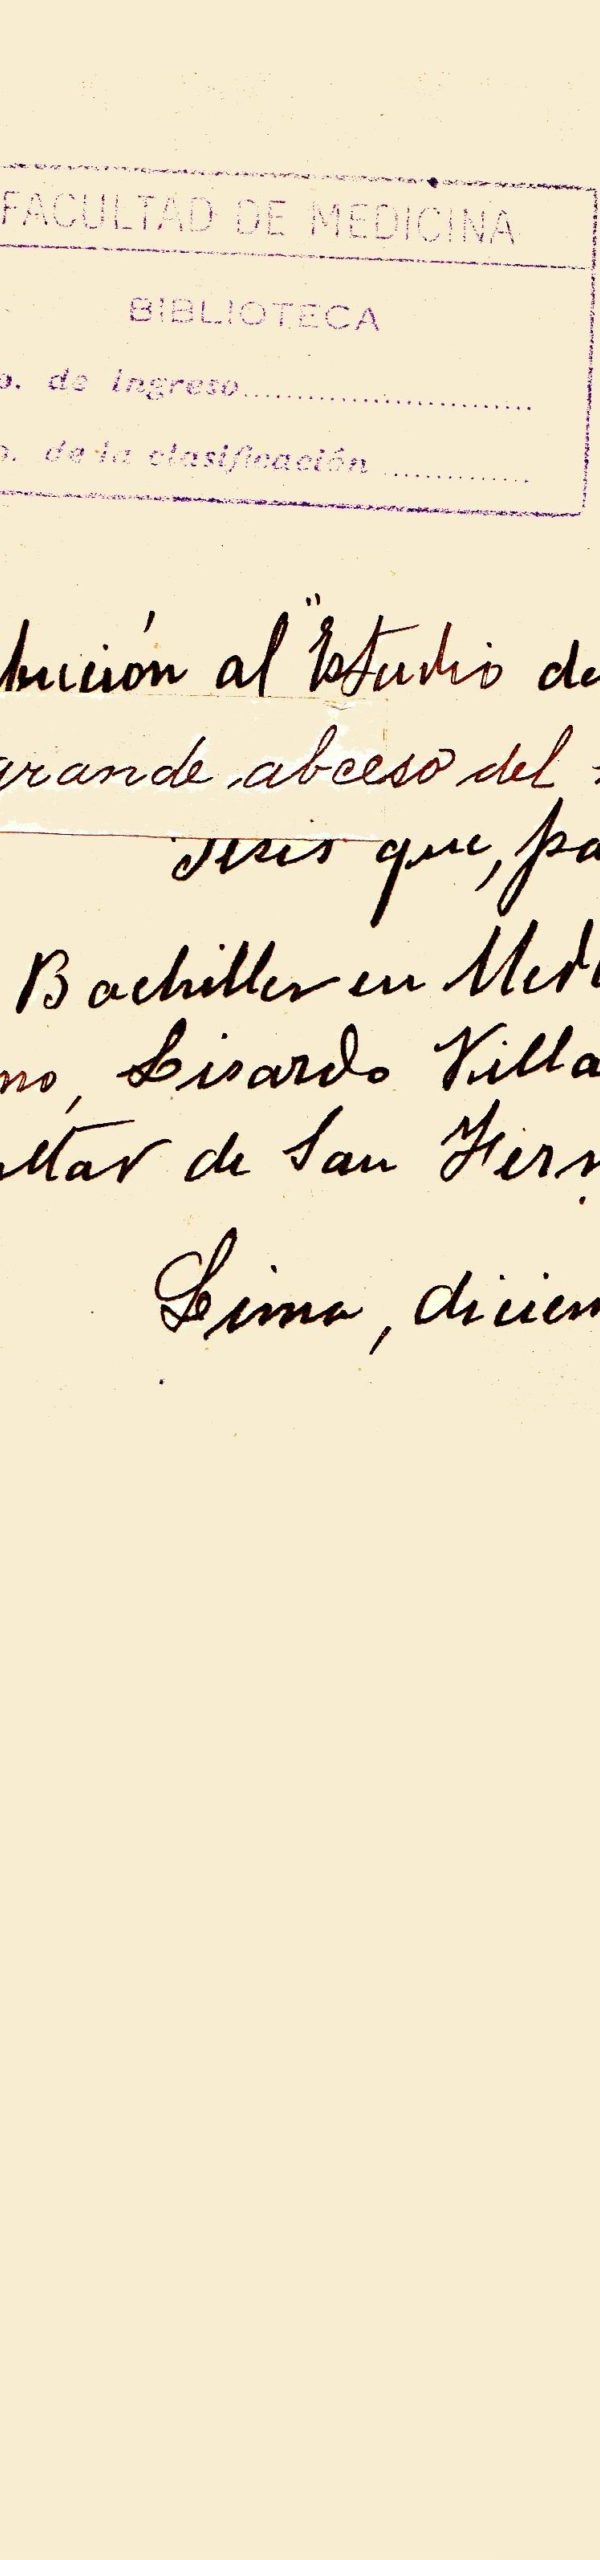 FACULTAD DE MEDICINA
BIBLIOTECA
o. de ingreso
o. de la clasificación
bución al "Estudio de
grande abceso del
Tesis que, pa
Bachiller en Medi
no, Lisardo Villa
ultad de San Fern
Lima, diciem